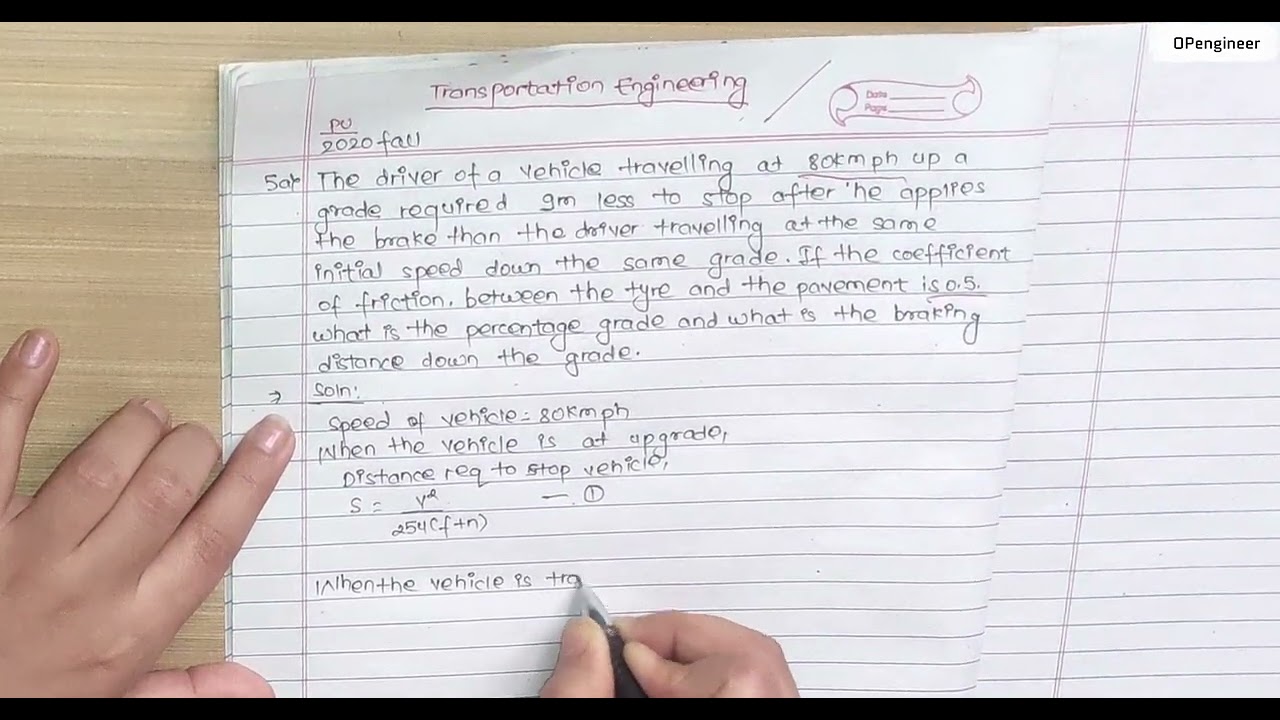 OPengineer
Transportation Engineering
Date
Page
PU
2020 fall
5a) The driver of a vehicle travelling at 80kmph up a
grade required 9m less to stop after he applies
the brake than the driver travelling at the same
initial speed down the same grade. If the coefficient
of friction. between the tyre and the pavement is 0.5.
what is the percentage grade and what is the braking
distance down the grade.
⇒ Soln:
Speed of vehicle = 80kmph
When the vehicle is at upgrade,
Distance req to stop vehicle,
S = V²
— ①
254(f+n)
When the vehicle is tra